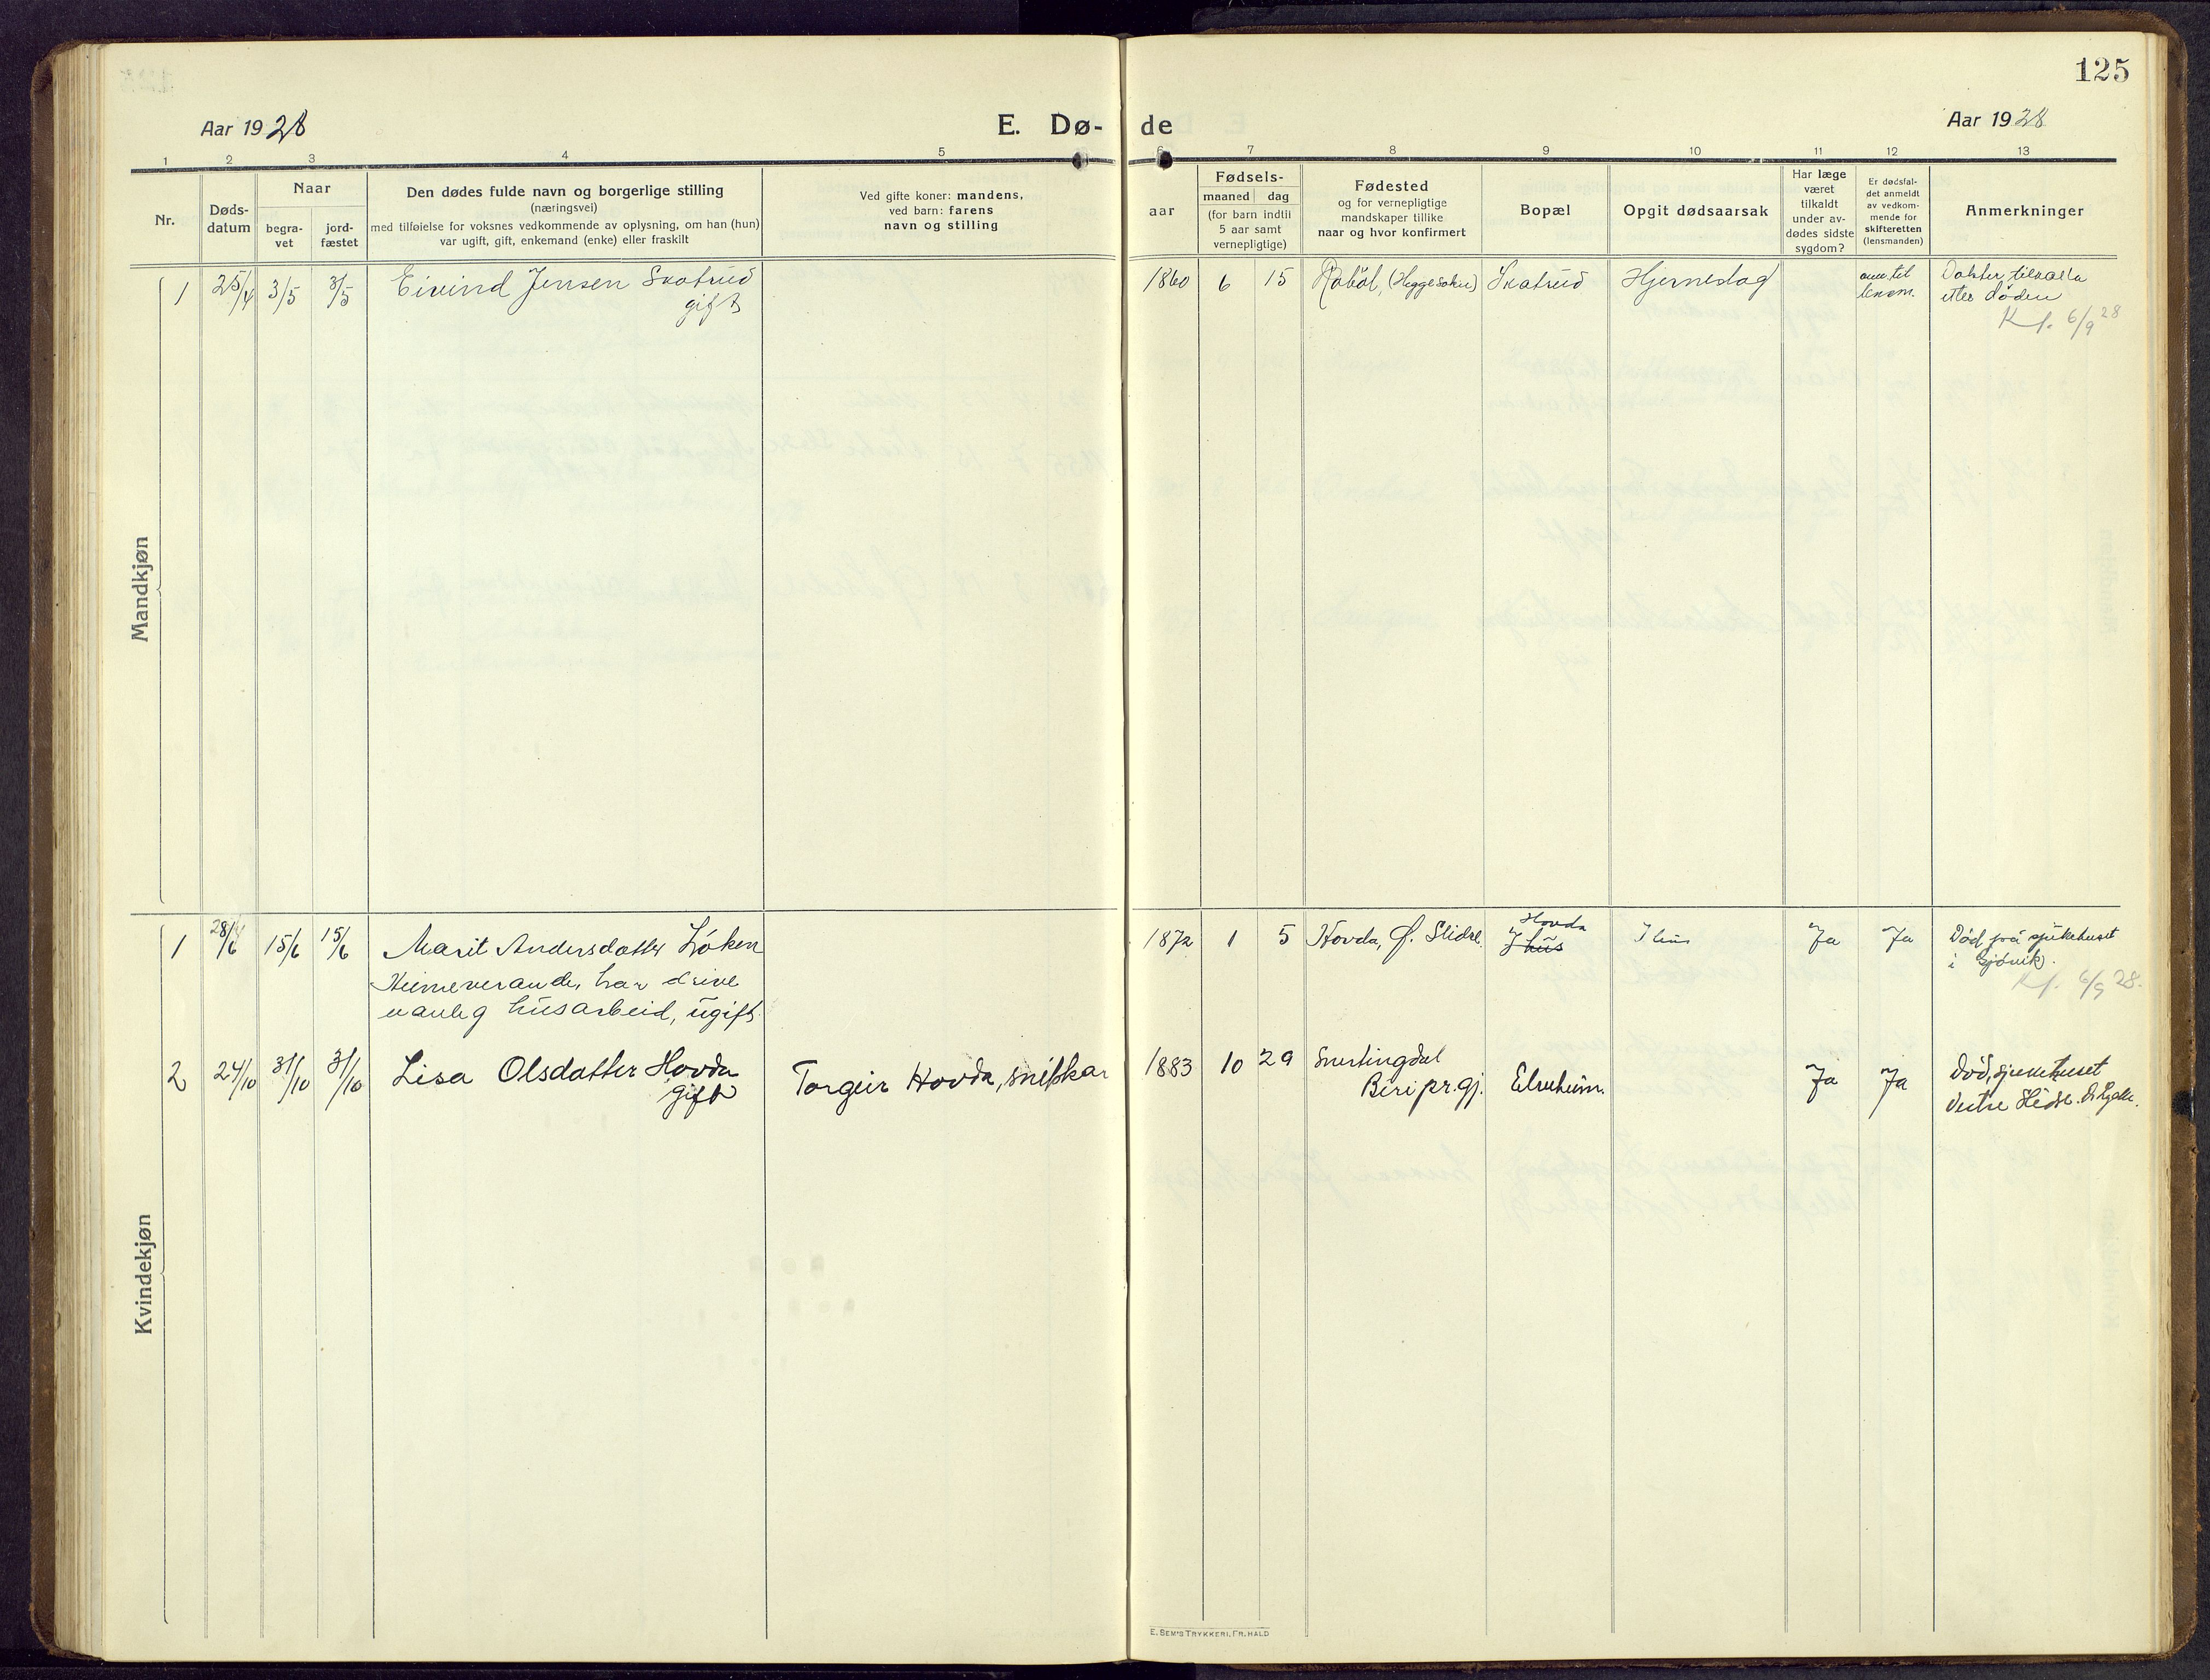 125
Aar 1928
E. Dø- de
Aar 1928
1 2 3 4 5 6 7 8 9 10 11 12 13
Nr.
Døds-
datum
Naar
begra-
vet
jord-
fæstet
Den dødes fulde navn og borgerlige stilling
(næringsvei)
med tilføielse for voksnes vedkommende av oplysning, om han (hun)
var ugift, gift, enkemand (enke) eller fraskilt
Ved gifte koner: mandens,
ved barn: farens
navn og stilling
Fødsels-
aar
maaned dag
(for barn indtil
5 aar samt
vernepligtige)
Fødested
og for vernepligtige
mandskaper tillike
naar og hvor konfirmert
Bopæl
Opgit dødsaarsak
Har læge
været
tilkaldt
under av-
dødes sidste
sygdom?
Er dødsfal-
det anmeldt
av vedkom-
mende for
skifteretten
(lensmanden)
Anmerkninger
Mandkjøn
1 25/4 3/5 3/5 Eivind Jensen Skatrud 1860 6 15 Røbøl, (Heggesokn) Skatrud Hjerneslag
gift
til
lensm.
Dokter tilkalla
etter døden
Kf. 6/9 28
Kvindekjøn
1 28/4 15/6 15/6 Marit Andersdatter Løken 1872 1 5 Hovda, Ø. Slidre. Hovda Ja Ja Død på sjukehuset
Heimeverande, har drive
i Gjøvik.
vanleg husarbeid, ugift.
Kf. 6/9 28.
2 24/10 31/10 31/10 Lisa Olsdatter Hovda Torgeir Hovda, snikkar 1883 10 29 Snertingdal Ja Ja Død, sjukehuset
gift
Biri pr.gj. Elveheim.
Vestre Slidre.
E. SEM'S TRYKKERI, FR.HALD